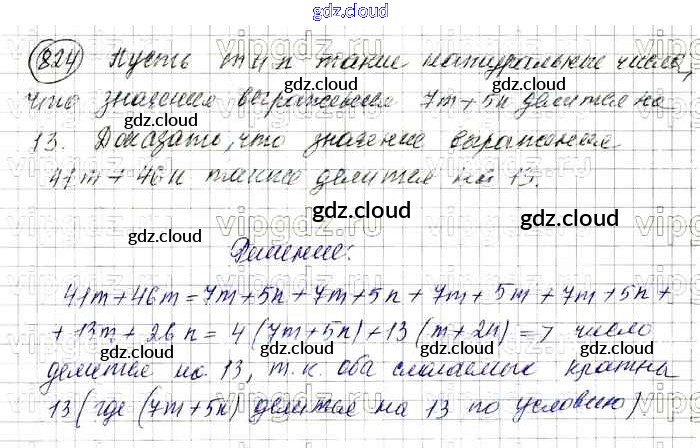 gdz.cloud
824 Пусть m и n такие натуральные числа,
что значение выражения 7m+5n делится на
13. Доказать, что значение выражения
41m + 46n также делится на 13.
Решение:
41m+46m=7m+5n+7m+5n+7m+5m+7m+5n+
+13m+26n= 4(7m+5n)+13(m+2n) => число
делится на 13, т.к оба слагаемых кратны
13 (где (7m+5n) делится на 13 по условию)
gdz.cloud
gdz.cloud
gdz.cloud
gdz.cloud
gdz.cloud
gdz.cloud
gdz.cloud
gdz.cloud
gdz.cloud
vipgdz.ru